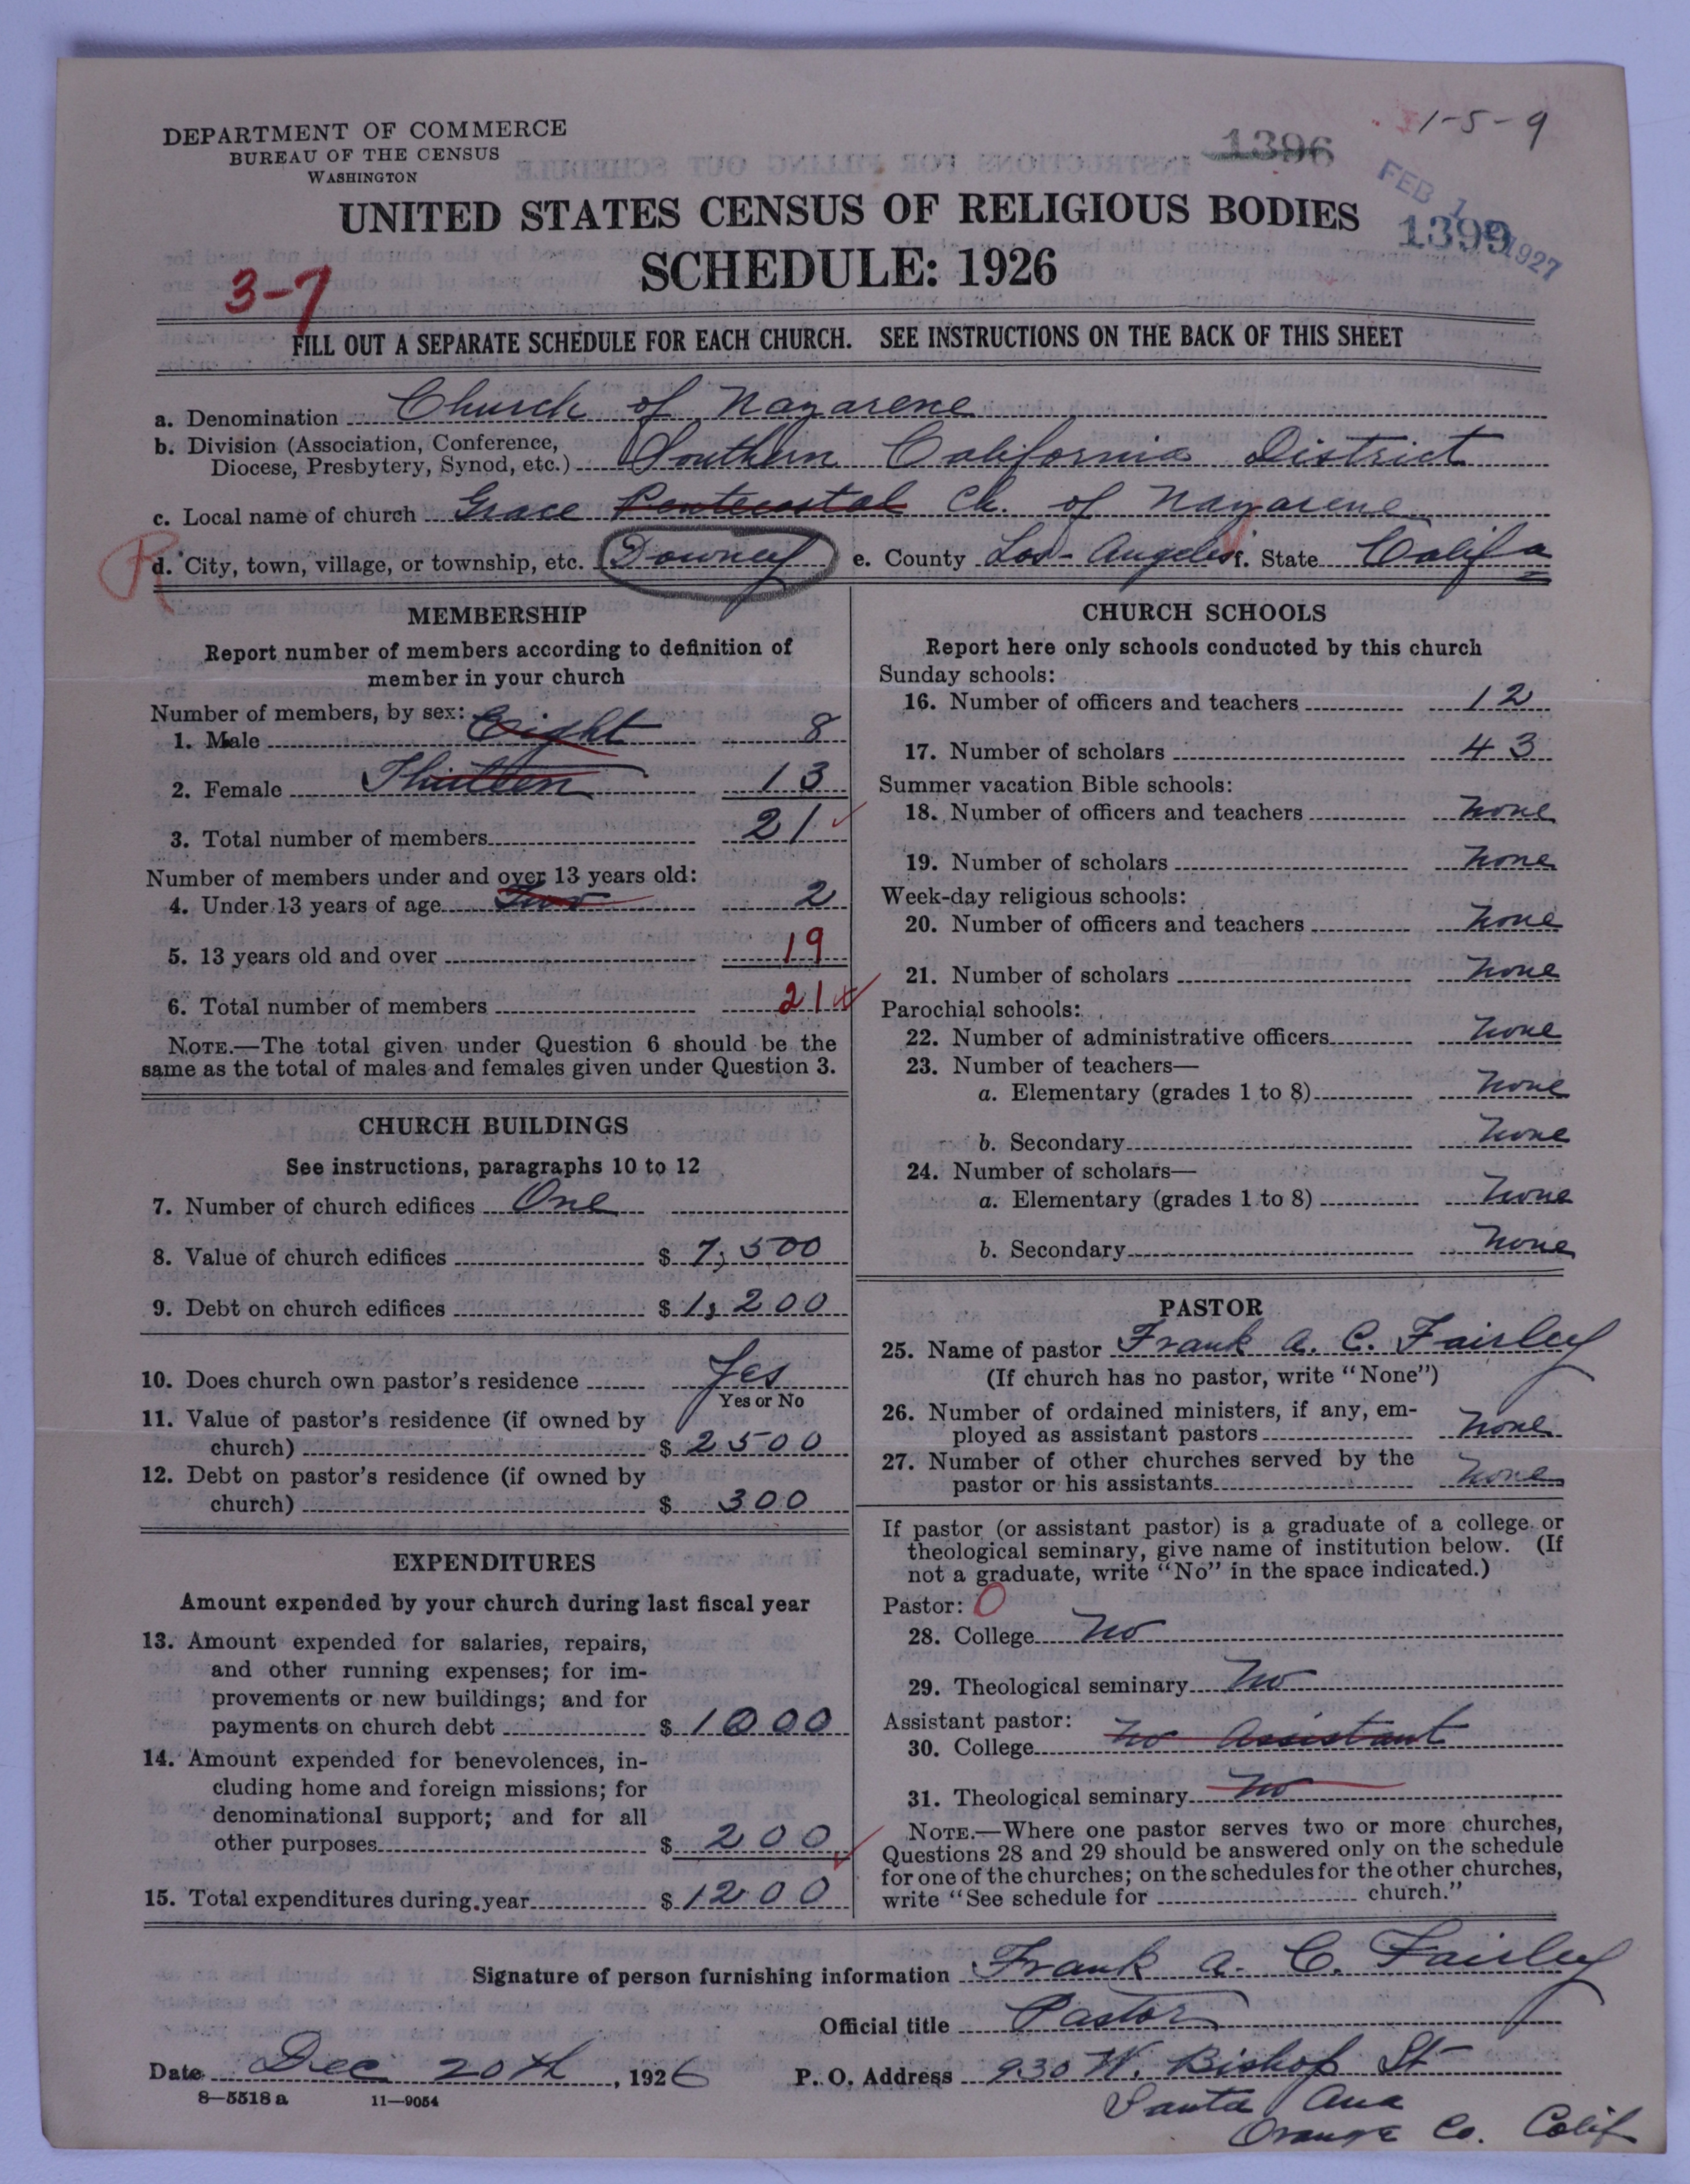 1-5-9
DEPARTMENT OF COMMERCE
BUREAU OF THE CENSUS
WASHINGTON
1396
FEB 1 1927
1399
UNITED STATES CENSUS OF RELIGIOUS BODIES
SCHEDULE: 1926
3-7
FILL OUT A SEPARATE SCHEDULE FOR EACH CHURCH. SEE INSTRUCTIONS ON THE BACK OF THIS SHEET
a. Denomination Church of Nazarene
b. Division (Association, Conference,
Diocese, Presbytery, Synod, etc.) Southern California District
c. Local name of church Grace Pentecostal Ch. of Nazarene
R
d. City, town, village, or township, etc. Downey e. County Los-Angeles f. State Calif
MEMBERSHIP
Report number of members according to definition of
member in your church
Number of members, by sex:
1. Male Eight 8
2. Female Thirteen 13
3. Total number of members 21
Number of members under and over 13 years old:
4. Under 13 years of age Two 2
5. 13 years old and over 19
6. Total number of members 21
NOTE.—The total given under Question 6 should be the
same as the total of males and females given under Question 3.
CHURCH BUILDINGS
See instructions, paragraphs 10 to 12
7. Number of church edifices One
8. Value of church edifices $ 7,500
9. Debt on church edifices $ 1,200
10. Does church own pastor's residence Yes
Yes or No
11. Value of pastor's residence (if owned by
church) $ 2500
12. Debt on pastor's residence (if owned by
church) $ 300
EXPENDITURES
Amount expended by your church during last fiscal year
13. Amount expended for salaries, repairs,
and other running expenses; for im-
provements or new buildings; and for
payments on church debt $ 1000
14. Amount expended for benevolences, in-
cluding home and foreign missions; for
denominational support; and for all
other purposes $ 200
15. Total expenditures during year $ 1200
CHURCH SCHOOLS
Report here only schools conducted by this church
Sunday schools:
16. Number of officers and teachers 12
17. Number of scholars 43
Summer vacation Bible schools:
18. Number of officers and teachers none
19. Number of scholars none
Week-day religious schools:
20. Number of officers and teachers none
21. Number of scholars none
Parochial schools:
22. Number of administrative officers none
23. Number of teachers—
a. Elementary (grades 1 to 8) none
b. Secondary none
24. Number of scholars—
a. Elementary (grades 1 to 8) none
b. Secondary none
PASTOR
25. Name of pastor Frank A. C. Fairley
(If church has no pastor, write "None")
26. Number of ordained ministers, if any, em-
ployed as assistant pastors none
27. Number of other churches served by the
pastor or his assistants none
If pastor (or assistant pastor) is a graduate of a college or
theological seminary, give name of institution below. (If
not a graduate, write "No" in the space indicated.)
Pastor: 0
28. College No
29. Theological seminary No
Assistant pastor:
30. College No Assistant
31. Theological seminary No
NOTE.—Where one pastor serves two or more churches,
Questions 28 and 29 should be answered only on the schedule
for one of the churches; on the schedules for the other churches,
write "See schedule for church."
Signature of person furnishing information Frank A. C. Fairley
Official title Pastor
Date Dec 20th, 1926 P. O. Address 930 W. Bishop St
8—5518 a 11—9054
Santa Ana
Orange Co. Calif